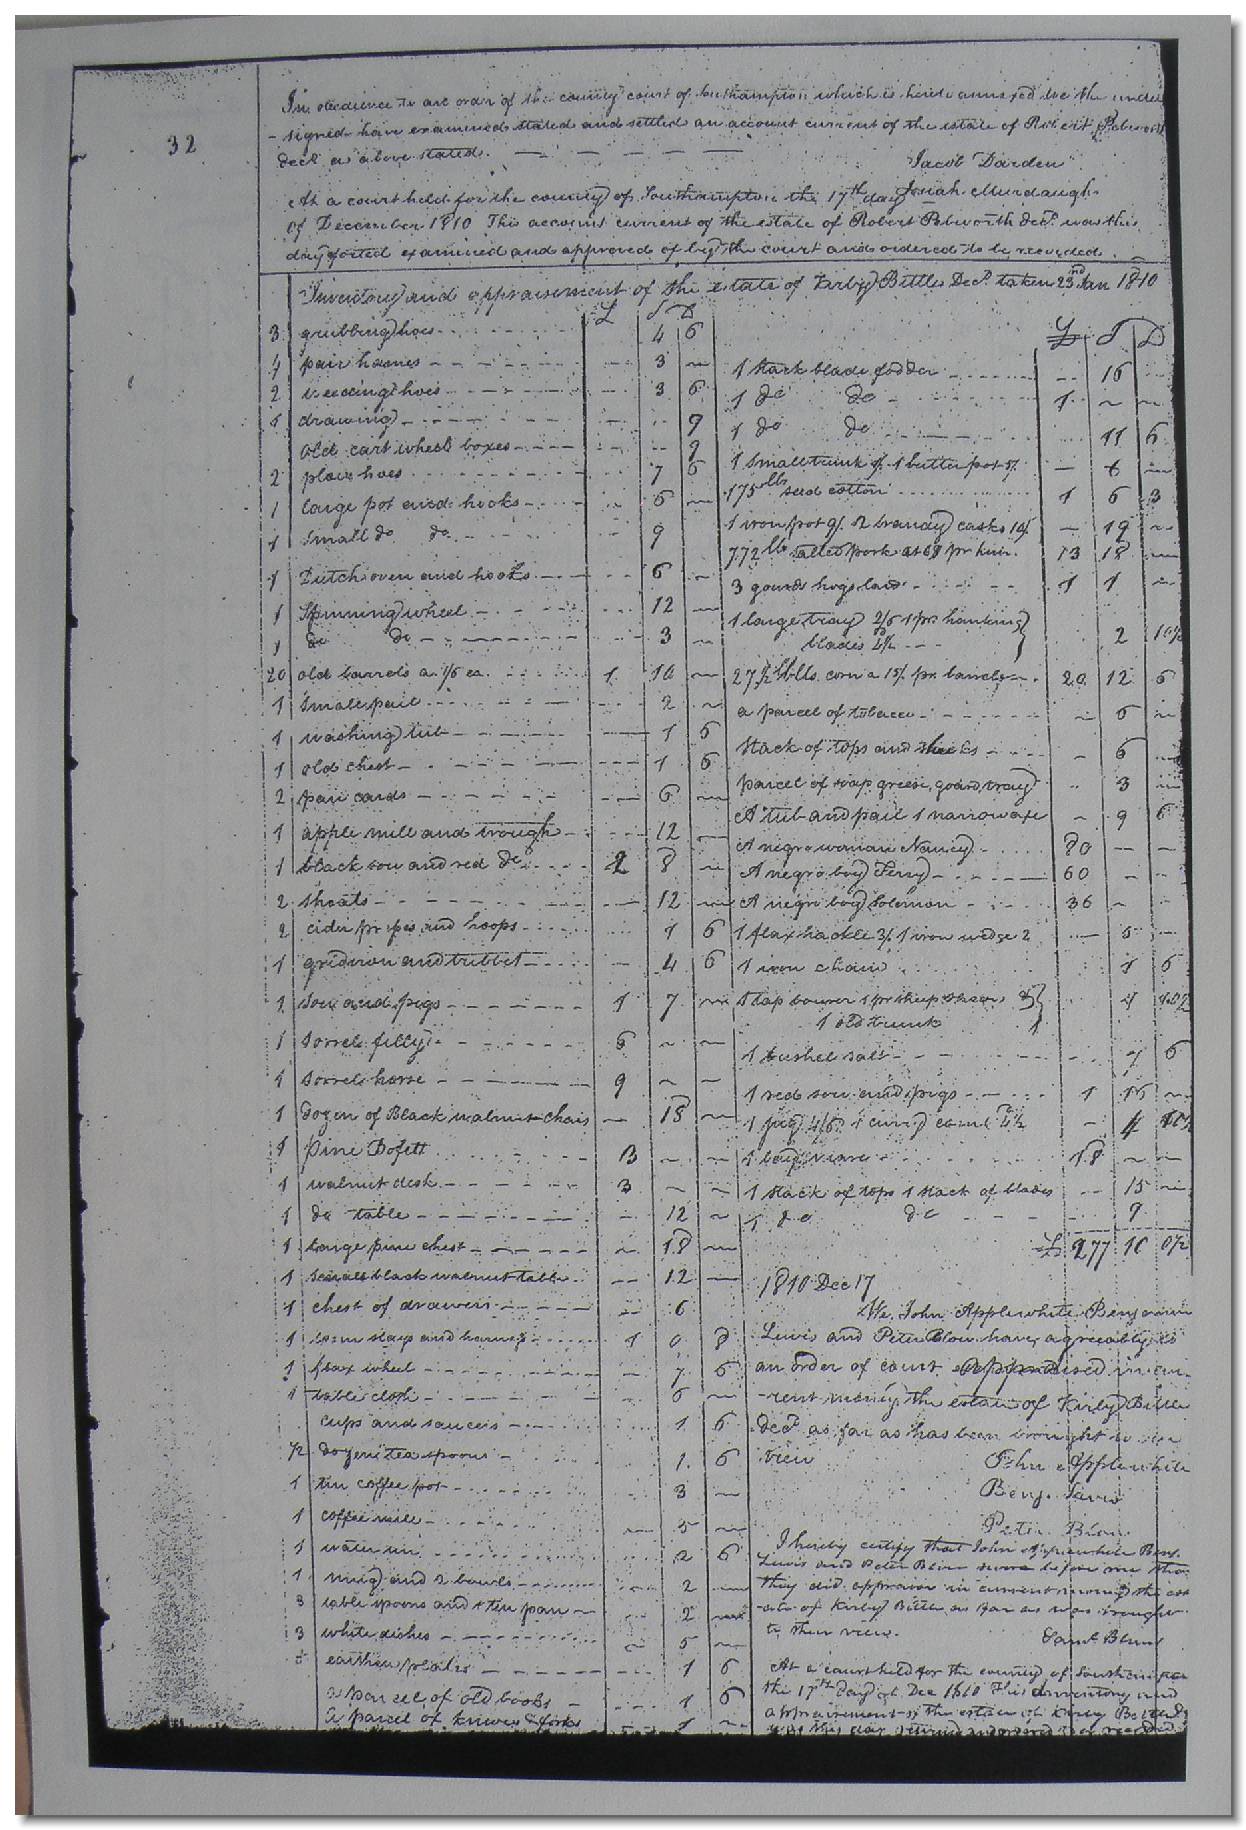 32
In obedience to an order of the county court of Southampton which is hereto annexed we the under
-signed have examined stated and settled an account current of the estate of Robert Pebworth
decd as above stated. — — — — —
Jacob Darden
Josiah Murdaugh
At a court held for the county of Southampton the 17th day
of December 1810 This account current of the estate of Robert Pebworth decd was this
day examined and approved of by the court and ordered to be recorded.
Inventory and appraisement of the estate of Kirby Bittle Decd. taken 23rd Jan 1810
£ S D
3 grubbing hoes 4 6
4 pair hames 3 —
2 weeding hoes 3 6
1 drawing 9
old cart wheel boxes 9
2 plow hoes 7 6
1 large pot and hooks 6 —
1 Small do do 9
1 Dutch oven and hooks 6 —
1 Spinning wheel 12 —
1 do do 3 —
20 old barrels a 1/6 ea. 1 10 —
1 Small pail 2 —
1 washing tub 1 6
1 old chest 1 6
2 pair cards 6 —
1 apple mill and trough 12 —
1 black sow and red do 2 8 —
2 shoats 12 —
2 cider pipes and hoops 1 6
1 gridiron and 4 6
1 sow and pigs 1 7 —
1 sorrel filly 6 — —
1 sorrel horse 9 — —
1 dozen of Black walnut chairs — 18 —
1 Pine Bofett 3 — —
1 walnut desk 3 — —
1 do table 12 —
1 large pine chest 18 —
1 small black walnut table 12 —
1 chest of drawers 6
1 stays and 1 0
1 flax wheel 7 6
1 table cloth 6 —
cups and saucers 1 6
1/2 dozen tea spoons 1 6
1 tin coffee pot 3 —
1 coffee mill 5 —
1 2 6
1 mug and 2 bowls 2 —
3 table spoons and 1 tin pan 2 —
3 white dishes 5 —
earthen plates 1 6
a parcel of old books 1 6
a parcel of knives & forks 1 —
£ S D
1 stack blade fodder 16 —
1 do do 1 — —
1 do do 11 6
1 small trunk 1/ 1 butter pot 5/ — 6 —
175 lbs seed cotton 1 6 3
1 iron pot 9/. 2 brandy casks 10/ — 19 —
772 lbs salted pork at pr hun. 13 18 —
3 gourds hogs lard 1 1 —
1 large tray 2/6 1 pr
blades 4½ 2 10½
27½ bbls corn a 15/. pr barrel 20 12 6
a parcel of tobacco 6 —
stack of tops and 6
parcel of soap grease, gourd, tray 3
A tub and pail 1 narrow axe — 9 6
A negro woman Nancy 80 — —
A negro boy 60 — —
A negro boy Solomon 36 — —
1 flax hackle 3/. 1 iron wedge 2 — 5 —
1 iron chain 1 6
1 pr sheep shears
1 old trunk 4 10½
1 bushel salt 7 6
1 red sow and pigs 1 16 —
1 jug 4/6. 1 curry comb 4½ — 4 10½
1 bay mare 18 — —
1 stack of tops 1 stack of blades 15 —
1 do do 9
£ 277 10 0½
1810 Dec 17
We, John Applewhite Benjamin
Lewis and Peter Blow have agreeably to
an order of court appraised in cur
-rent money the estate of Kirby Bittle
decd as far as has been brought to our
view
John Applewhite
Benj. Lewis
Peter Blow
I hereby certify that John Applewhite Benj.
Lewis and Peter Blow swore before me that
they did appraise in current money the est
-ate of Kirby Bittle as far as was brought
to their view.
Saml. Blunt
At a court held for the county of Southampton
the 17th day of Dec 1810 This inventory and
appraisement of the estate of Kirby Bittle
was this day returned and ordered to be recorded